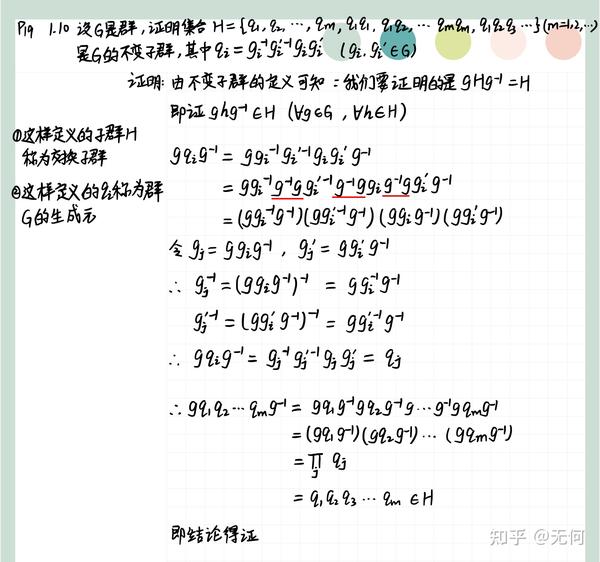 P19 1.10 设G是群,证明集合 H={q₁,q₂,…,qₘ,q₁q₁,q₁q₂,…qₘqₘ,q₁q₂q₃…}(m=1,2,…)
是G的不变子群,其中 qᵢ=gᵢ⁻¹gᵢ'⁻¹gᵢgᵢ' (gᵢ,gᵢ'∈G)
证明:由不变子群的定义可知:我们要证明的是 gHg⁻¹=H
即证 ghg⁻¹∈H (∀g∈G,∀h∈H)
①这样定义的子群H
称为交换子群
②这样定义的qᵢ称为群
G的生成元
gqᵢg⁻¹=ggᵢ⁻¹gᵢ'⁻¹gᵢgᵢ'g⁻¹
=ggᵢ⁻¹g⁻¹ggᵢ'⁻¹g⁻¹ggᵢg⁻¹ggᵢ'g⁻¹
=(ggᵢ⁻¹g⁻¹)(ggᵢ'⁻¹g⁻¹)(ggᵢg⁻¹)(ggᵢ'g⁻¹)
令 gⱼ=ggᵢg⁻¹, gⱼ'=ggᵢ'g⁻¹
∴ gⱼ⁻¹=(ggᵢg⁻¹)⁻¹ = ggᵢ⁻¹g⁻¹
gⱼ'⁻¹=(ggᵢ'g⁻¹)⁻¹=ggᵢ'⁻¹g⁻¹
∴ gqᵢg⁻¹=gⱼ⁻¹gⱼ'⁻¹gⱼgⱼ'=qⱼ
∴ gq₁q₂…qₘg⁻¹=gq₁g⁻¹gq₂g⁻¹g…g⁻¹gqₘg⁻¹
=(gq₁g⁻¹)(gq₂g⁻¹)…(gqₘg⁻¹)
=∏ⱼ qⱼ
=q₁q₂q₃…qₘ∈H
即结论得证
知乎 @无何